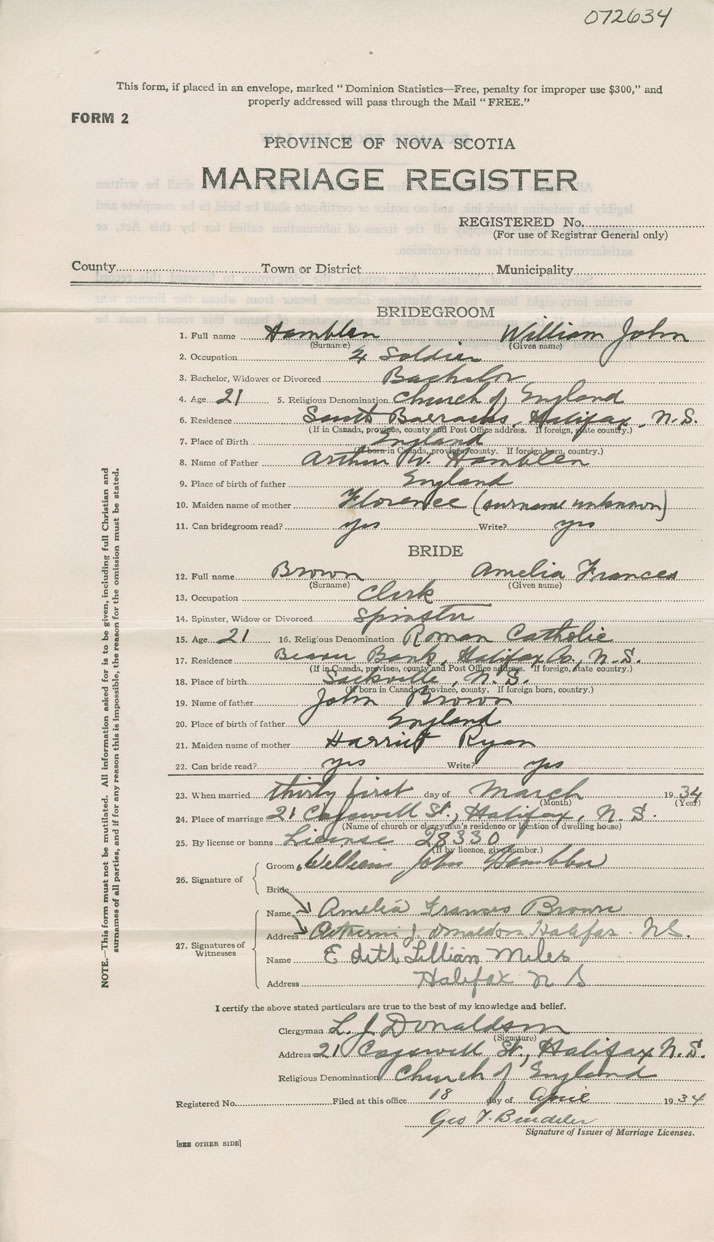 072634
This form, if placed in an envelope, marked "Dominion Statistics—Free, penalty for improper use $300," and
properly addressed will pass through the Mail "FREE."
FORM 2
PROVINCE OF NOVA SCOTIA
MARRIAGE REGISTER
REGISTERED No.
(For use of Registrar General only)
County Town or District Municipality
BRIDEGROOM
1. Full name Hamblen William John
(Surname) (Given name)
2. Occupation Soldier
3. Bachelor, Widower or Divorced Bachelor
4. Age 21 5. Religious Denomination Church of England
6. Residence South Barracks, Halifax, N.S.
(If in Canada, province, county and Post Office address. If foreign, state country.)
7. Place of Birth England
(If born in Canada, province, county. If foreign born, country.)
8. Name of Father Arthur W. Hamblen
9. Place of birth of father England
10. Maiden name of mother Florence (surname unknown)
11. Can bridegroom read? yes Write? yes
BRIDE
12. Full name Brown Amelia Frances
(Surname) (Given name)
13. Occupation Clerk
14. Spinster, Widow or Divorced Spinster
15. Age 21 16. Religious Denomination Roman Catholic
17. Residence Beaver Bank, Halifax Co., N.S.
(If in Canada, province, county and Post Office address. If foreign, state country.)
18. Place of birth Sackville, N.S.
(If born in Canada, province, county. If foreign born, country.)
19. Name of father John Brown
20. Place of birth of father England
21. Maiden name of mother Harriet Ryan
22. Can bride read? yes Write? yes
23. When married thirty first day of March 1934
(Month) (Year)
24. Place of marriage 21 Cogswell St., Halifax, N.S.
(Name of church or clergyman's residence or location of dwelling house)
25. By license or banns License 28330
(If by licence, give number.)
26. Signature of Groom William John Hamblen
Bride
27. Signatures of Witnesses Name Amelia Frances Brown
Address J. Donaldson Halifax NS.
Name Edith Lillian Miles
Address Halifax N S
I certify the above stated particulars are true to the best of my knowledge and belief.
Clergyman L. J. Donaldson
(Signature)
Address 21 Cogswell St., Halifax N.S.
Religious Denomination Church of England
Registered No. Filed at this office 18 day of April 1934
Geo
Signature of Issuer of Marriage Licenses.
[SEE OTHER SIDE]
NOTE.—This form must not be mutilated. All information asked for is to be given, including full Christian and
surnames of all parties, and if for any reason this is impossible, the reason for the omission must be stated.